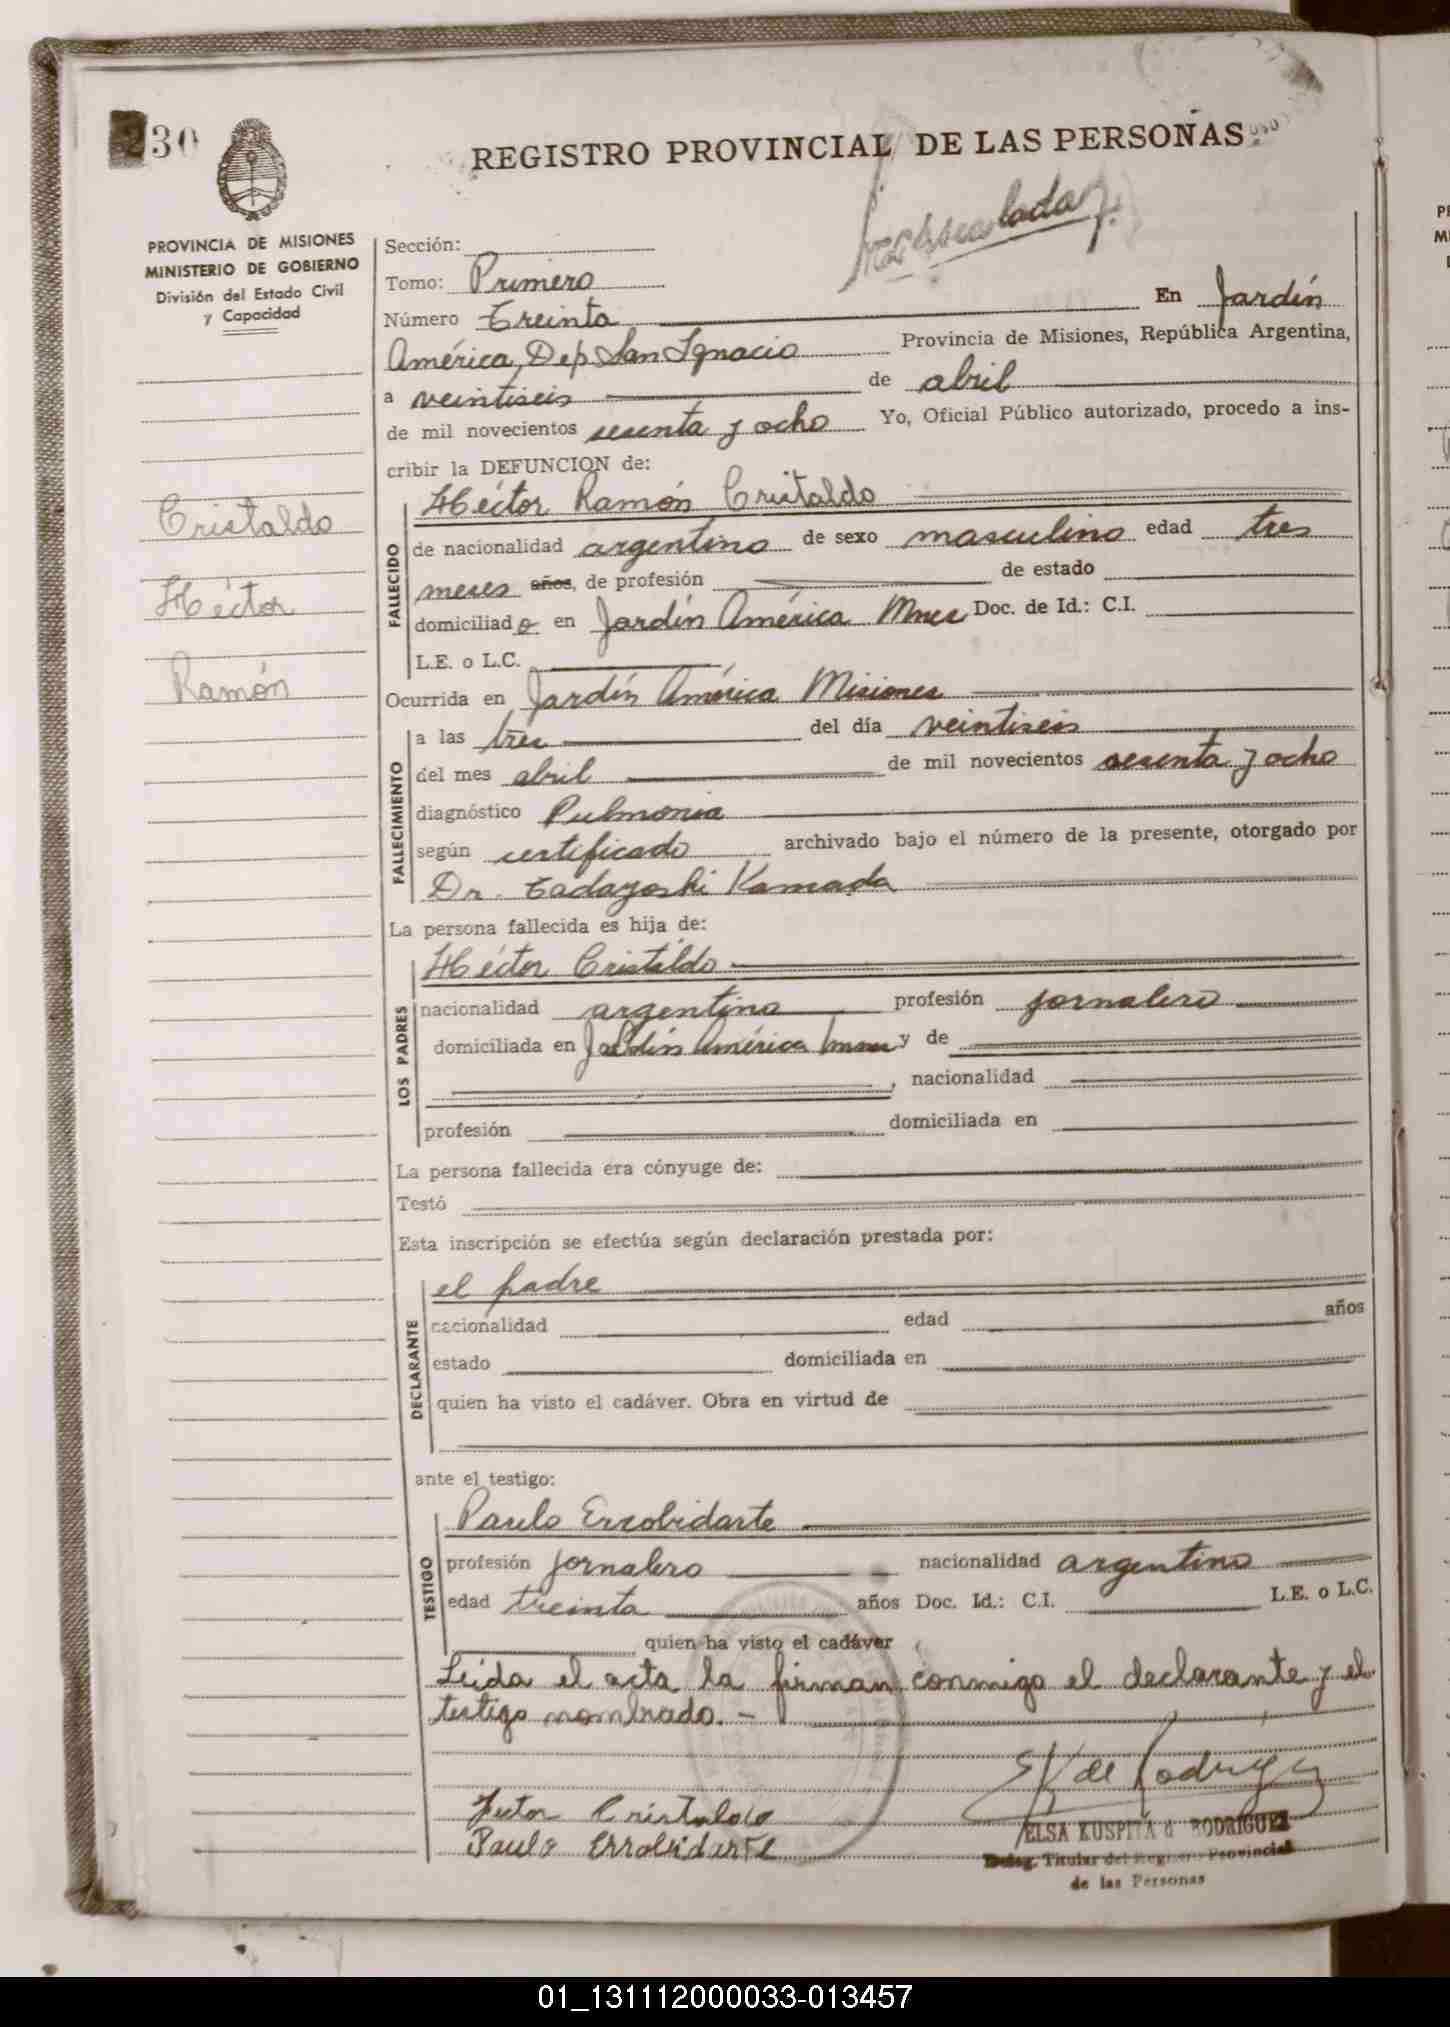 230
REGISTRO PROVINCIAL DE LAS PERSONAS
PROVINCIA DE MISIONES
MINISTERIO DE GOBIERNO
División del Estado Civil
y Capacidad
Cristaldo
Héctor
Ramón
Sección:
Tomo: Primero
Número Treinta En Jardín
América, Dep. San Ignacio Provincia de Misiones, República Argentina,
a veintiseis de abril
de mil novecientos sesenta y ocho Yo, Oficial Público autorizado, procedo a ins-
cribir la DEFUNCION de:
FALLECIDO
Héctor Ramón Cristaldo
de nacionalidad argentino de sexo masculino edad tres
meses años, de profesión de estado
domiciliado en Jardín América Mnes Doc. de Id.: C.I.
L.E. o L.C.
Ocurrida en Jardín América Misiones
FALLECIMIENTO
a las tres del día veintiseis
del mes abril de mil novecientos sesenta y ocho
diagnóstico Pulmonia
según certificado archivado bajo el número de la presente, otorgado por
Dr. Tadayoshi Kamada
La persona fallecida es hija de:
LOS PADRES
Héctor Cristaldo
nacionalidad argentino profesión jornalero
domiciliada en Jardín América y de
, nacionalidad
profesión domiciliada en
La persona fallecida era cónyuge de:
Testó
Esta inscripción se efectúa según declaración prestada por:
DECLARANTE
el padre
nacionalidad edad años
estado domiciliada en
quien ha visto el cadáver. Obra en virtud de
ante el testigo:
TESTIGO
Paulo Errobidarte
profesión jornalero nacionalidad argentino
edad treinta años Doc. Id.: C.I. L.E. o L.C.
quien ha visto el cadáver
Leída el acta la firman conmigo el declarante y el
testigo nombrado. -
Cristaldo
Paulo Errobidarte
ELSA KUSPITA d RODRIGUEZ
Deleg. Titular del Registro Provincial
de las Personas
01_131112000033-013457